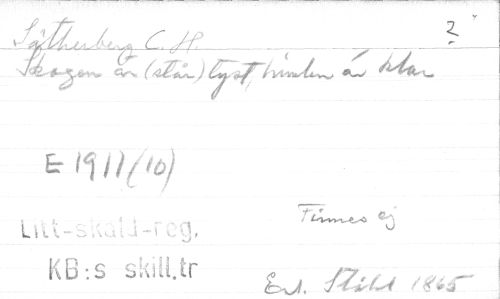 Sätherberg C. H. ?
Skogen är (står) tyst, himlen är klar
E 1911(10)
Finnes ej
Litt-skald-reg.
KB:s skill.tr
Enl. Ståhl 1865